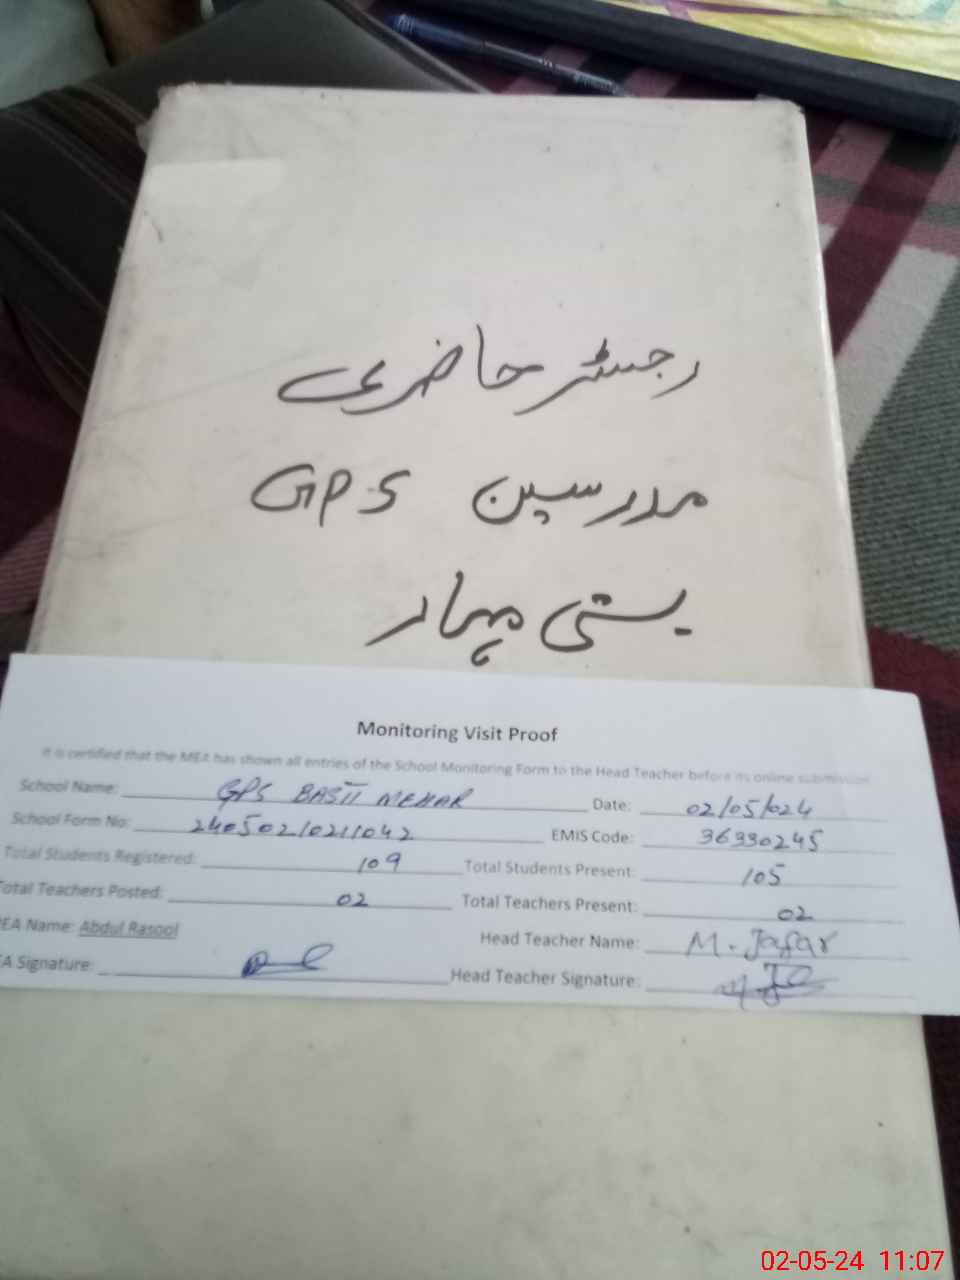 رجسٹر حاضری
مدرسین GPS
بستی مہار
Monitoring Visit Proof
It is certified that the MEA has shown all entries of the School Monitoring Form to the Head Teacher before its online submission
School Name: GPS BASTI MEHAR Date: 02/05/024
School Form No: 24050210211042 EMIS Code: 36330245
Total Students Registered: 109 Total Students Present: 105
Total Teachers Posted: 02 Total Teachers Present: 02
MEA Name: Abdul Rasool Head Teacher Name: M. Jafar
EA Signature: Head Teacher Signature:
02-05-24 11:07